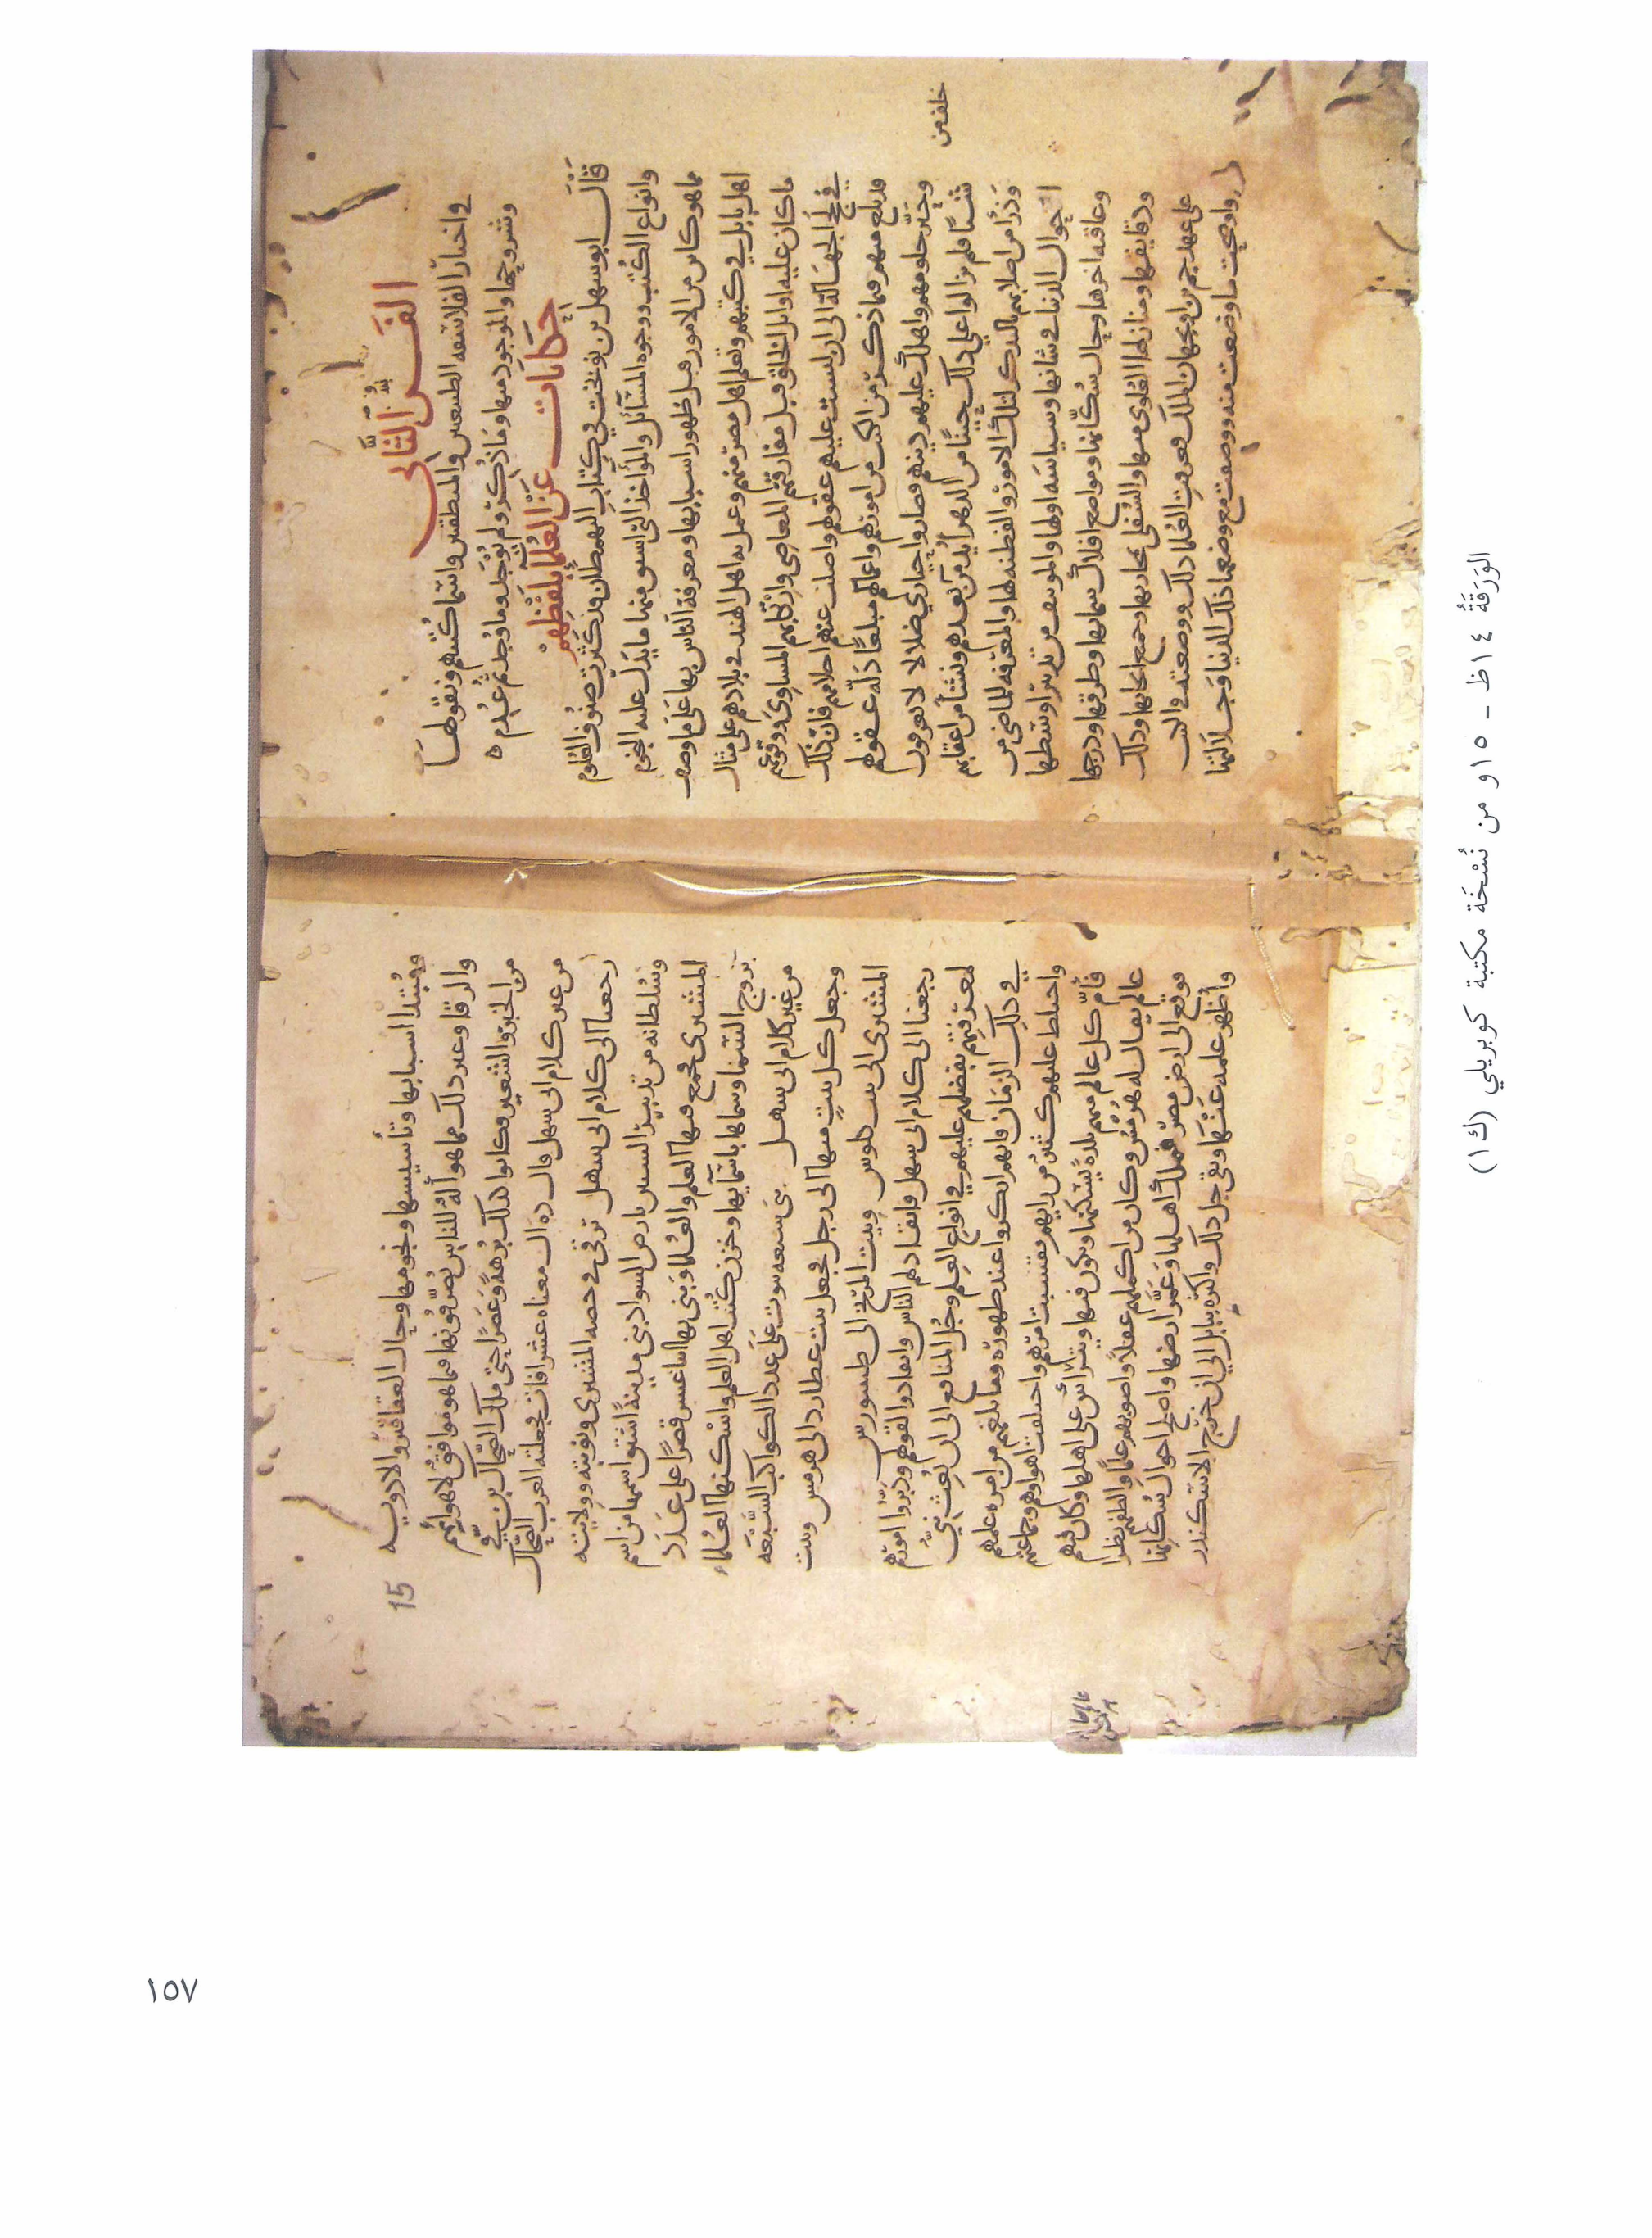 الفن الثاني
في اخبار الفلاسفه الطبيعيين والمنطقيين واسما كتبهم ونقولها
وشروحها والموجود منها وما ذكر ولم يوجد وما وجد ثم عدم
حكايات عن العلما بلفظهم
قال ابو سهل بن نوبخت في كتاب النهمطان قد كثرت صنوف العلوم
وانواع الكتب ووجوه المسائل والمآخذ التي اشتق منها ما يدل عليه النجوم
مما هو كاين من الامور قبل ظهور اسبابها ومعرفة الناس بها على ما وصف
اهل بابل في كتبهم وتعلم اهل مصر منهم وعمل به اهل الهند في بلادهم على مثال
ما كان عليه اوائل الخلق قبل مقارفتهم المعاصي وارتكابهم المساوئ ووقوعهم
في لجج الجهالة الى ان لبست عليهم عقولهم واضلت عنهم احلامهم فان ذلك
قد بلغ منهم فيما ذكر من الكتب من امورهم واعمالهم مبلغا دله عقولهم
وحير حلومهم واهلك عليهم دينهم فصاروا حيارى ضلالا لا يعرفون
شيئا فلم يزالوا على ذلك حينا من الدهر حتى ايد من خلف من بعدهم ونشأ من اعقابهم
وذرأ من اصلابهم بالتذكر لتلك الامور والفطنه لها والمعرفه للماضي من
احوال الدنيا في شانها وسياسه اولها والموتنف من تدبير اوسطها
وعاقبه اخرها وحال سكانها ومواضع افلاك سمائها وطرقها ودرجها
ودقايقها ومنازلها العلوى منها والسفلى بمجاريها وجميع انحائها وذلك
على عهد جم بن اونجهان الملك فعرفت العلما ذلك ووضعته في الكتب
واوضحت ما وضعت منه ووصفت مع وضعها ذلك الدنيا وجلالتها
15
ومبتدا اسبابها وتأسيسها ونجومها وحال العقاقير والادويه
والرقا وغير ذلك مما هو آلة للناس يصرفونها فيما هو موافق لاهوائهم
من الخير والشر فكانوا كذلك برهة وعصرا حتى ملك الضحاك بن قي
من غير كلام ابي سهل قال ده اك معناه عشر افات فجعلته العرب الضحاك
رجعنا الى كلام ابي سهل بن قي في حصه المشتري ونوبته وولايته
وسلطانه من تدبير السنين بارض السواد بنى مدينة اشتق اسمها من اسم
المشتري فجمع فيها العلم والعلما وبنى بها اثنا عشر قصرا على عدد
بروج السما وسماها باسمائها وخزن كتب اهل العلم واسكنها العلماء
من غير كلام ابي سهل بنى سبعه بيوت على عدد الكواكب السبعه
وجعل كل بيت منها الى رجل فجعل بيت عطارد الى هرمس وبيت
المشتري الى تينكلوس وبيت المريخ الى طينقروس
رجعنا الى كلام ابي سهل فانقاد لهم الناس وانقادوا لقولهم ودبروا امورهم
لمعرفتهم بفضلهم عليهم في انواع العلم وحيل المنافع الى ان بعث نبي
في ذلك الزمان فانهم انكروا عند ظهوره وما بلغهم من امره علمهم
واختلط عليهم كثير من رايهم فتشتت امرهم واختلفت اهواؤهم وجماعتهم
فأم كل عالم منهم بلدة يسكنها ويكون فيها ويترأس على اهلها وكان فيهم
عالم يقال له هرمس وكان من اكملهم عقلا واصوبهم علما والطفهم نظرا
فوقع الى ارض مصر فملك اهلها وعمر ارضها واصلح احوال سكانها
واظهر علمه فيها وبقي جل ذلك واكثره ببابل الى ان خرج الاسكندر
الوَرَقَةُ ١٤ظ - ١٥و من نُسْخَة مكتبة كوبريلي (ك١)
١٥٧